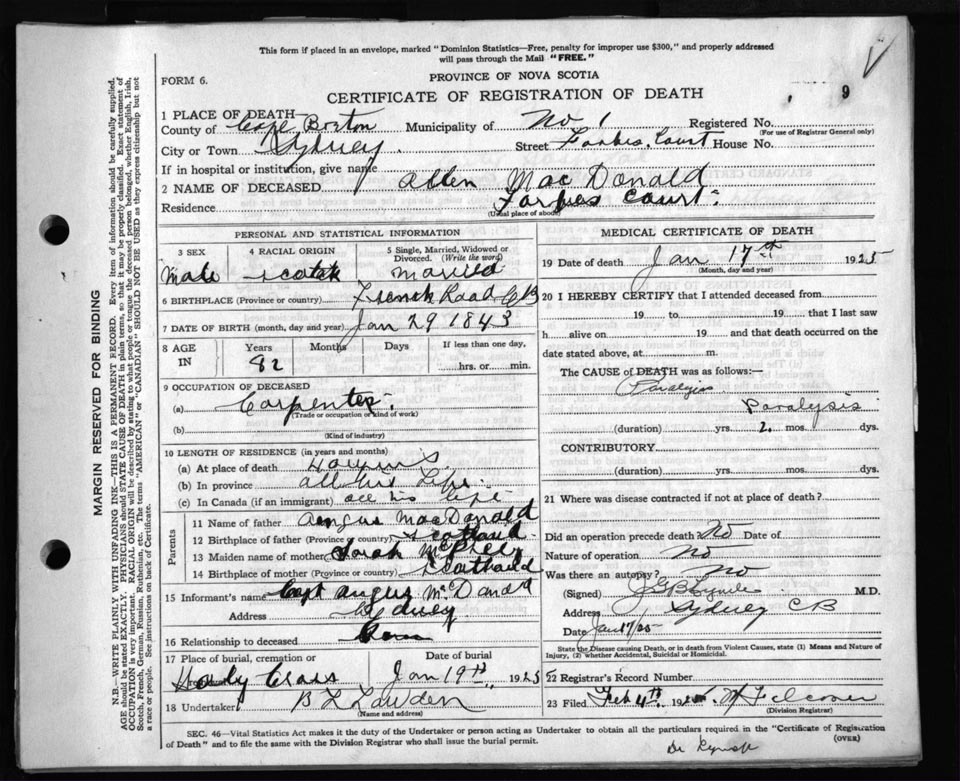 This form if placed in an envelope, marked "Dominion Statistics—Free, penalty for improper use $300," and properly addressed
will pass through the Mail "FREE."
FORM 6.
PROVINCE OF NOVA SCOTIA
9
CERTIFICATE OF REGISTRATION OF DEATH
1 PLACE OF DEATH—
County of Cape Breton Municipality of No 1 Registered No.
(For use of Registrar General only)
City or Town Sydney Street Forbes Court House No.
If in hospital or institution, give name
2 NAME OF DECEASED Allen MacDonald
Residence Court
(Usual place of abode)
MARGIN RESERVED FOR BINDING
N.B.—WRITE PLAINLY WITH UNFADING INK—THIS IS A PERMANENT RECORD. Every item of information should be carefully supplied.
AGE should be stated EXACTLY. PHYSICIANS should STATE CAUSE OF DEATH in plain terms, so that it may be properly classified. Exact statement of
OCCUPATION is very important. RACIAL ORIGIN will be described by stating to what people or tongue the deceased person belonged, whether English, Irish,
Scotch, French, German, Russian, Ruthenian, etc. The terms "AMERICAN" or "CANADIAN" SHOULD NOT BE USED as they express citizenship but not
a race or people. See instructions on back of Certificate.
PERSONAL AND STATISTICAL INFORMATION
3 SEX
Male
4 RACIAL ORIGIN
Scotch
5 Single, Married, Widowed or
Divorced. (Write the word)
Married
6 BIRTHPLACE (Province or country) French Road CB
7 DATE OF BIRTH (month, day and year) Jan 29 1843
8 AGE
IN
Years Months Days If less than one day,
82 hrs. or min.
9 OCCUPATION OF DECEASED
(a) Carpenter
(Trade or occupation or kind of work)
(b)
(Kind of industry)
10 LENGTH OF RESIDENCE (in years and months)
(a) At place of death
(b) In province all his life
(c) In Canada (if an immigrant) all his life
Parents
11 Name of father Aengus MacDonald
12 Birthplace of father (Province or country) Scotland
13 Maiden name of mother Sarah
14 Birthplace of mother (Province or country) Scotland
15 Informant's name Capt Angus McDonald
Address Sydney
16 Relationship to deceased
17 Place of burial, cremation or Date of burial
Holy Cross Jan 19th 1925
18 Undertaker
(Name and address)
MEDICAL CERTIFICATE OF DEATH
19 Date of death Jan 17th 1925
(Month, day and year)
20 I HEREBY CERTIFY that I attended deceased from
19 to 19 that I last saw
h alive on 19 and that death occurred on the
date stated above, at m.
The CAUSE of DEATH was as follows:—
Paralysis
Paralysis
(duration) yrs. 2. mos. dys.
CONTRIBUTORY
(duration) yrs. mos. dys.
21 Where was disease contracted if not at place of death?
Did an operation precede death? No Date of
Nature of operation No
Was there an autopsy? No
(Signed) M.D.
Address Sydney CB
Date Jan 17/25
State the Disease causing Death, or in death from Violent Causes, state (1) Means and Nature of
Injury, (2) whether Accidental, Suicidal or Homicidal.
22 Registrar's Record Number
23 Filed Feb 4th 192
(Division Registrar)
SEC. 46—Vital Statistics Act makes it the duty of the Undertaker or person acting as Undertaker to obtain all the particulars required in the "Certificate of Registration
of Death" and to file the same with the Division Registrar who shall issue the burial permit.
(OVER)